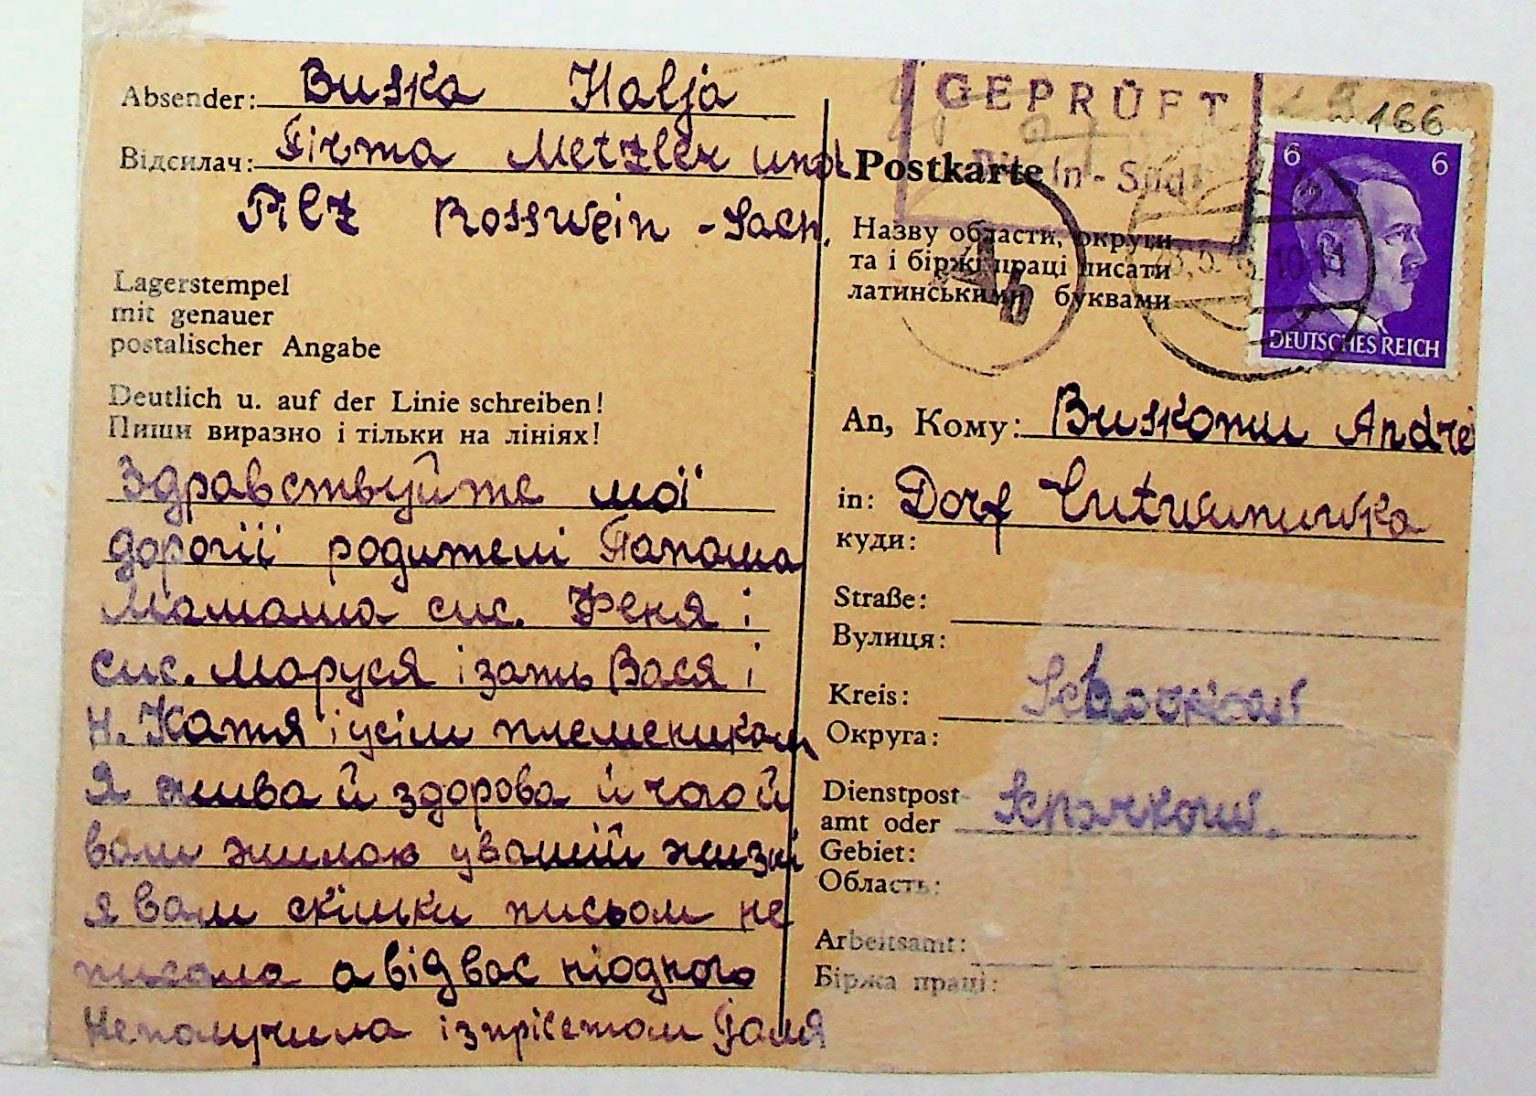 Absender: Buska Halja
Відсилач: Firma Metzler und
Pilz Rosswein - Sach.
Lagerstempel
mit genauer
postalischer Angabe
Deutlich u. auf der Linie schreiben!
Пиши виразно і тільки на лініях!
Здравствуйте мої
дорогії родителі Папаша
Мамаша сис. Феня і
сис. Маруся і зать Вася і
н. Катя і усім племеникам
Я жива й здорова й чого й
вам жилаю у вашій жизні
я вам скільки письом не
писала а від вас ніодного
Неполучила із прівєтом Галя
GEPRÜFT
166
Postkarte
6 6
DEUTSCHES REICH
Ab
Назву области, округи
та і біржі праці писати
латинськими буквами
An, Кому: Buskomu Andrei
in: Dorf
куди:
Straße:
Вулиця:
Kreis:
Округа:
Dienstpost-
amt oder
Gebiet:
Область:
Arbeitsamt:
Біржа праці: